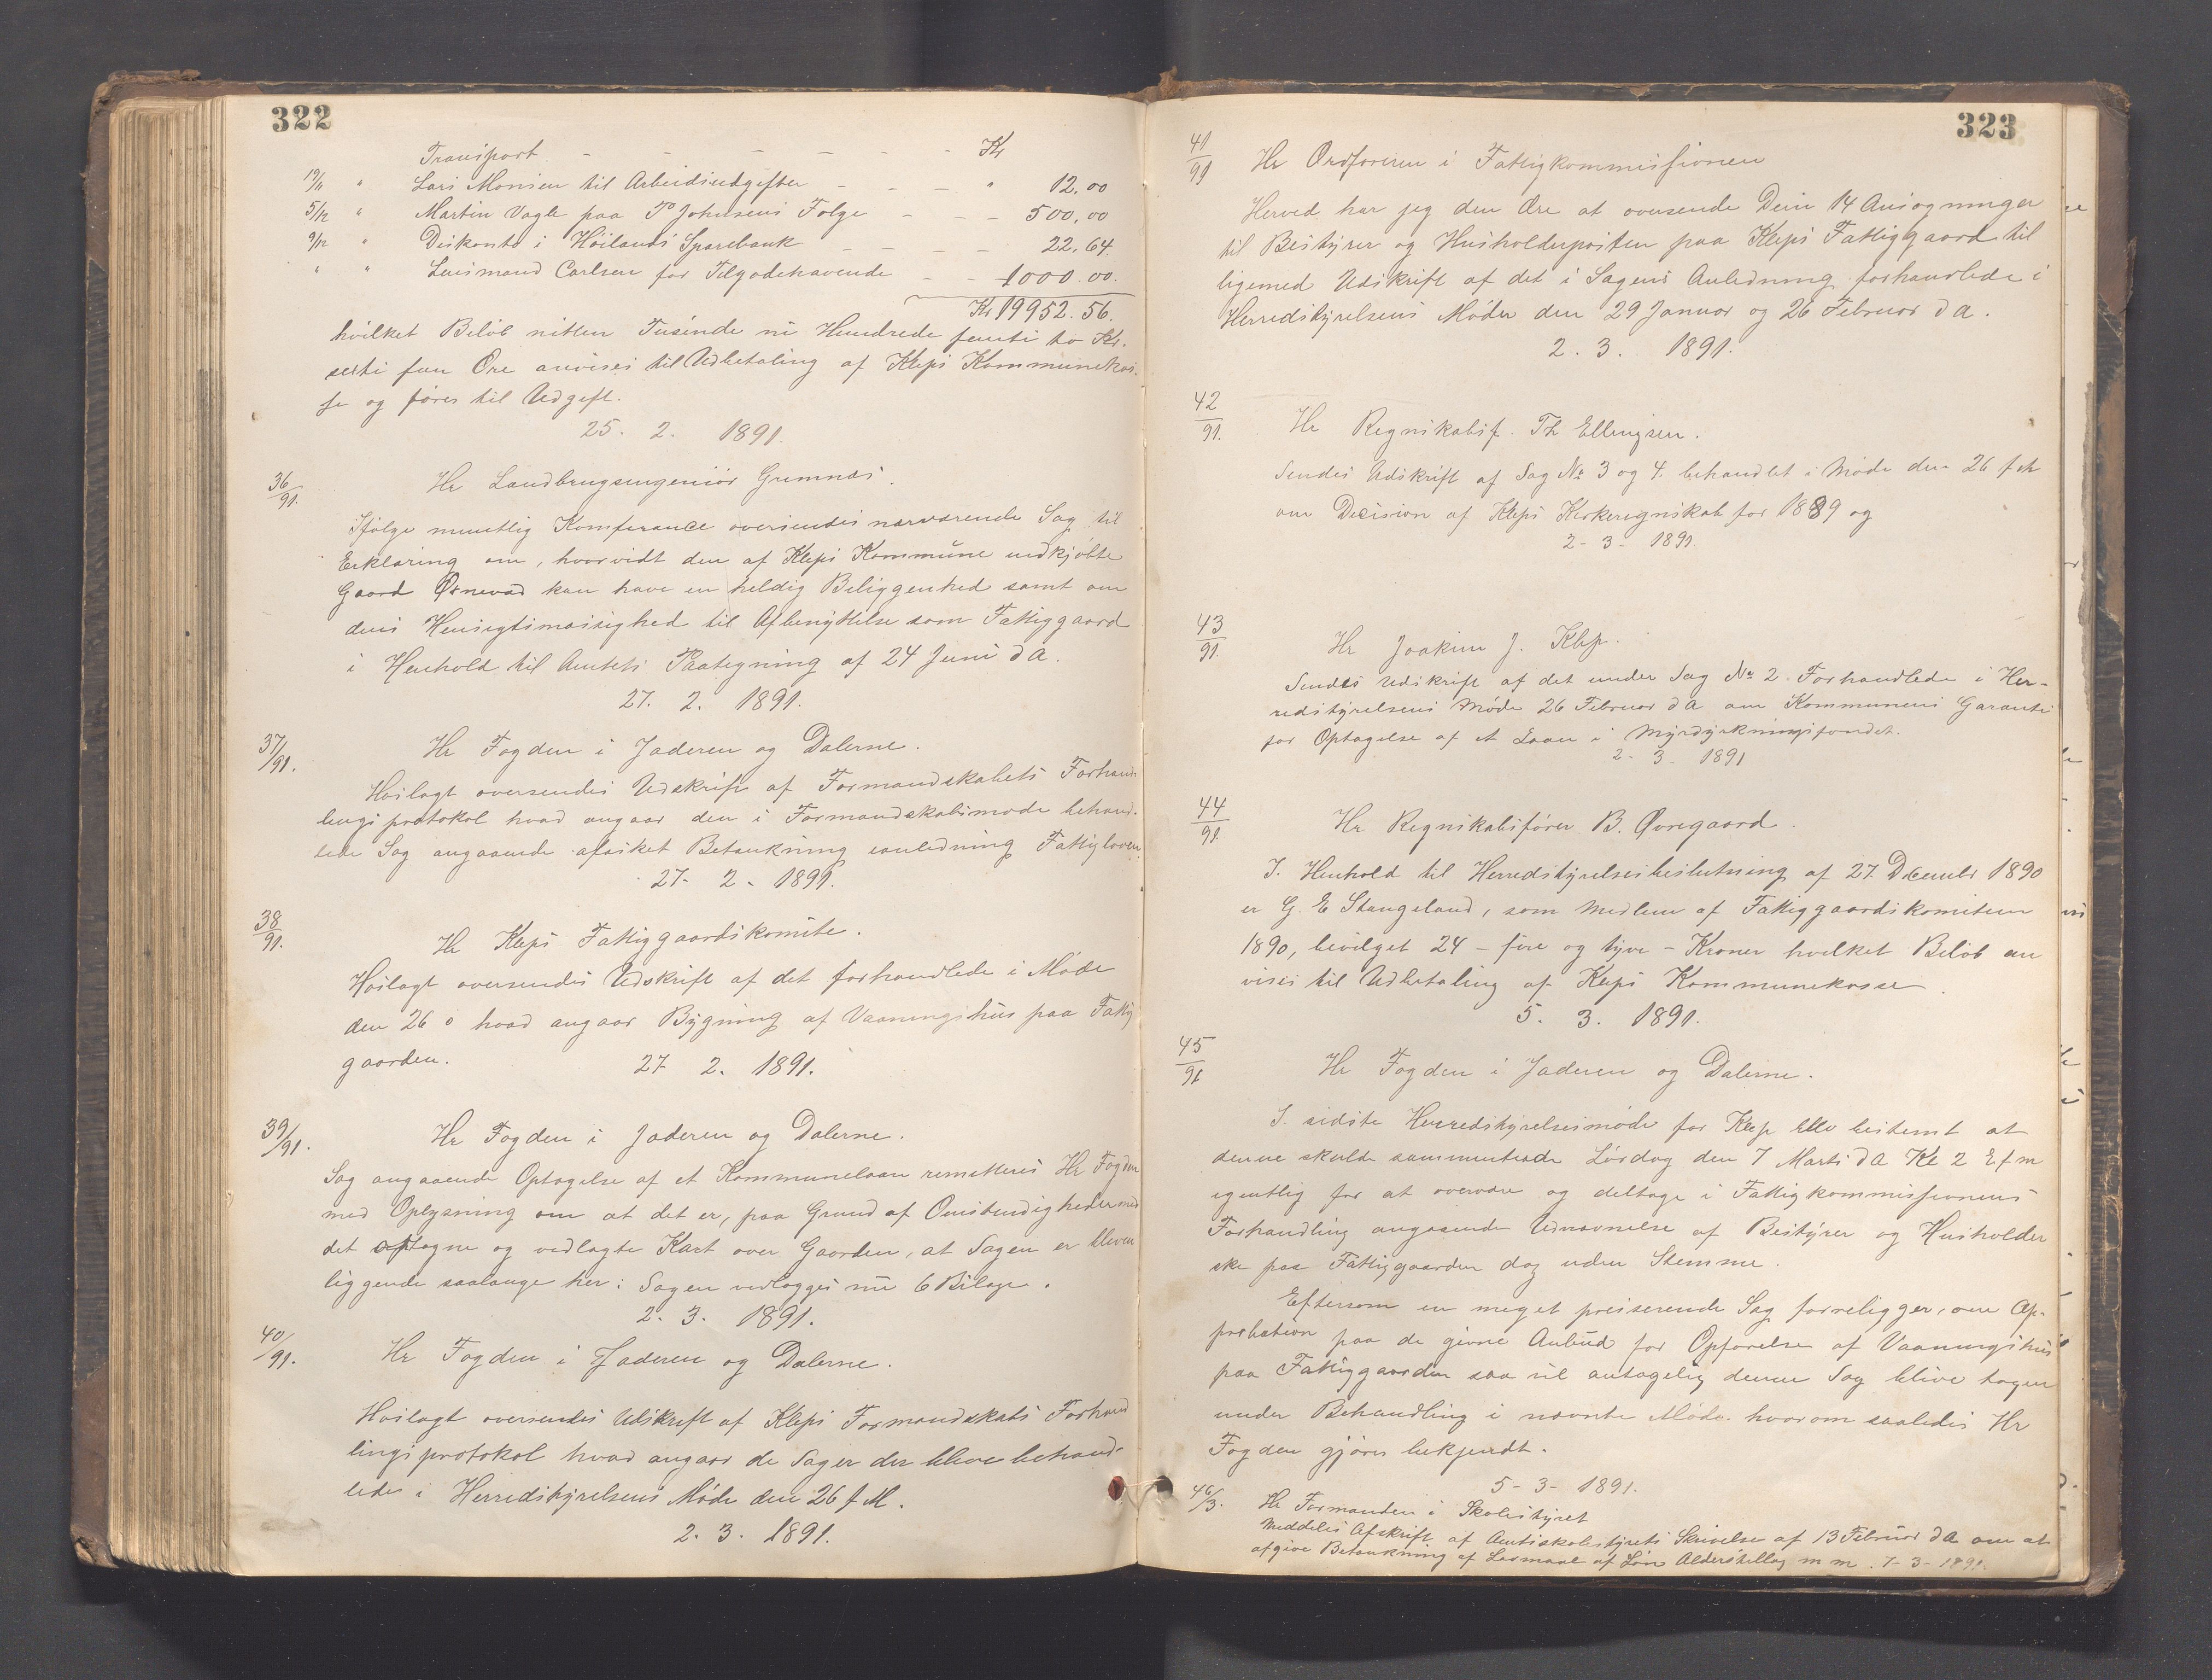 322
Transport - - - - - - Kr
19/11 " Lars Monsen til Arbeidsudgifter - - - " 12.00
5/12 " Martin Vagle paa T Johnsens Følge - - - 500.00
9/12 " Diskonto i Höilands Sparebank - - - - 22,64.
" " Lensmand Carlsen for Tilgodehavende - - 1000.00.
Kr 19952.56.
hvilket Beløb nitten Tusinde ni Hundrede femti to Kr.
seksti fem Øre anvises til Udbetaling af Kleps Kommunekas-
se og føres til Udgift.
25. 2. 1891.
36/91. Hr Landbrugsingeniör Grimnæs.
Ifølge mundtlig Komferance oversendes nærværende Sag til
Erklæring om, hvorvidt den af Kleps Kommune indkjøbte
Gaard Ørnevad kan have en heldig Beliggenhed samt om
dens Hensigtsmæssighed til Afbenyttelse som Fattiggaard
i Henhold til Amtets Paategning af 24 Juni d A.
27. 2. 1891.
37/91. Hr Fogden i Jæderen og Dalerne.
Høilagt oversendes Udskrift af Formandskabets Forhand-
lingsprotokol hvad angaar den i Formandskabsmøde behand-
lede Sag angaaende afæsket Betænkning anledning Fattigloven.
27- 2- 1891.
38/91. Hr Kleps Fattiggaardskomite.
Höilagt oversendes Udskrift af det forhandlede i Møde
den 26 s hvad angaar Bygning af Vaaningshus paa Fattig
gaarden. 27 2. 1891.
39/91. Hr Fogden i Jæderen og Dalerne.
Sag angaaende Optagelse af et Kommunelaan remitteres Hr Fogden
med Oplysning om at det er, paa Grund af Omstændigheder med
det optagne og vedlagte Kart over Gaarden, at Sagen er bleven
liggende saalænge her: Sagen vedlægges nu 6 Bilage.
2. 3. 1891.
40/91. Hr Fogden i Jæderen og Dalerne.
Høilagt oversendes Udskrift af Kleps Formandskabs Forhand
lingsprotokol hvad angaar de Sager der bleve behand-
lede i Herredstyrelsens Møde den 26 f M.
2. 3. 1891.
323
41/91 Hr Ordføreren i Fattigkommissionen
Herved har jeg den Ære at oversende Dem 14 Ansøgninger
til Bestyrer og Husholderposten paa Kleps Fattiggaard til
ligemed Udskrift af det i Sagens Anledning forhandlede i
Herredstyrelsens Møder den 29 Januar og 26 Februar d A.
2. 3. 1891.
42/91. Hr Regnskabsf. Th Ellingsen.
Sendes Udskrift af Sag No 3 og 4 behandlet i Møde den 26 f M
om Decision af Kleps Kirkeregnskab for 1889 og
2- 3- 1891.
43/91. Hr Joakim J. Klep.
Sendes Udskrift af det under Sag No 2 Forhandlede i Her-
redstyrelsens Møde 26 Februar d A om Kommunens Garanti
for Optagelse af et Laan i Myrdyrkningsfondet.
2- 3- 1891
44/91. Hr Regnskabsfører B. Øvregaard.
I Henhold til Herredstyrelsesbeslutning af 27. December 1890
er G. E Stangeland, som Medlem af Fattiggaardskomiteen
1890, bevilget 24 - fire og tyve - Kroner hvilket Beløb an
vises til Udbetaling af Kleps Kommunekasse.
5. 3. 1891.
45/91 Hr Fogden i Jæderen og Dalerne.
I sidste Herredstyrelsesmøde for Klep blev bestemt at
denne skulde sammentræde Lørdag den 7 Marts d A Kl 2 Efm
egentlig for at overvære og deltage i Fattigkommissionens
Forhandling angaaende Udnævnelse af Bestyrer og Husholder
ske paa Fattiggaarden dog uden Stemme.
Eftersom en meget presserende Sag foreligger, om Ap-
probation paa de givne Anbud for Opførelse af Vaaningshus
paa Fattiggaarden saa vil antagelig denne Sag blive tagen
under Behandling i nævnte Møde. hvorom saaledes Hr
Fogden gjøres bekjendt.
5- 3- 1891.
46/3. Hr Formanden i Skolestyret
Meddeles Afskrift af Amtsskolestyrets Skrivelse af 13 Februar d A om at
afgive Betænkning af af Løn Alderstillæg m m. 7- 3- 1891.